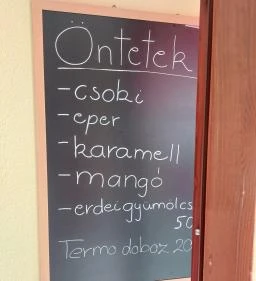 Öntetek
-csoki
-eper
-karamell
-mangó
-erdei gyümölcs
50
Termo doboz 20